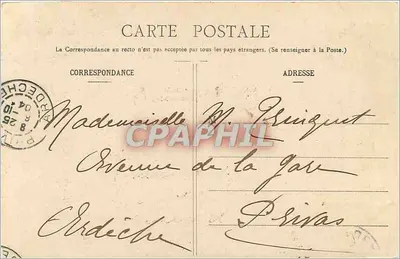 CARTE POSTALE
La Correspondance au recto n'est pas acceptée par tous les pays étrangers. (Se renseigner à la Poste.)
CORRESPONDANCE ADRESSE
Mademoiselle M. Pringuet
Avenue de la Gare
Privas
Ardèche
CPAPHIL
ARDECHE
8 25
04